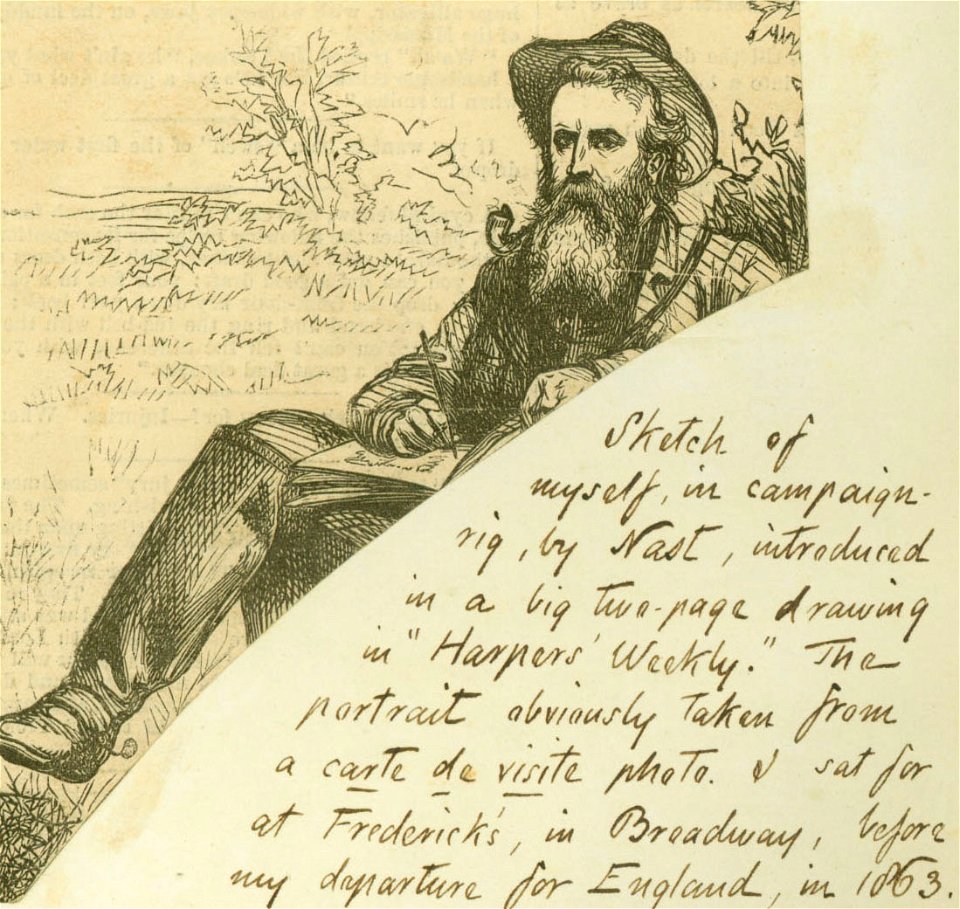 Sketch of
myself, in campaign-
rig, by Nast, introduced
in a big two-page drawing
in "Harpers' Weekly." The
portrait obviously taken from
a carte de visite photo. I sat for
at Frederick's, in Broadway, before
my departure for England, in 1863.